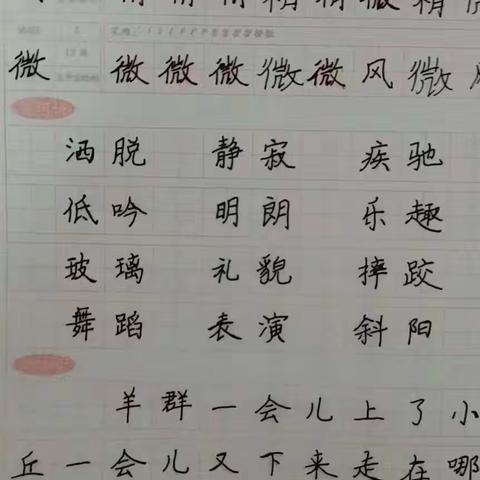 微 微微微微微风微
洒脱 静寂 疾驰
低吟 明朗 乐趣
玻璃 礼貌 摔跤
舞蹈 表演 斜阳
羊群一会儿上了小
丘一会儿又下来走在哪